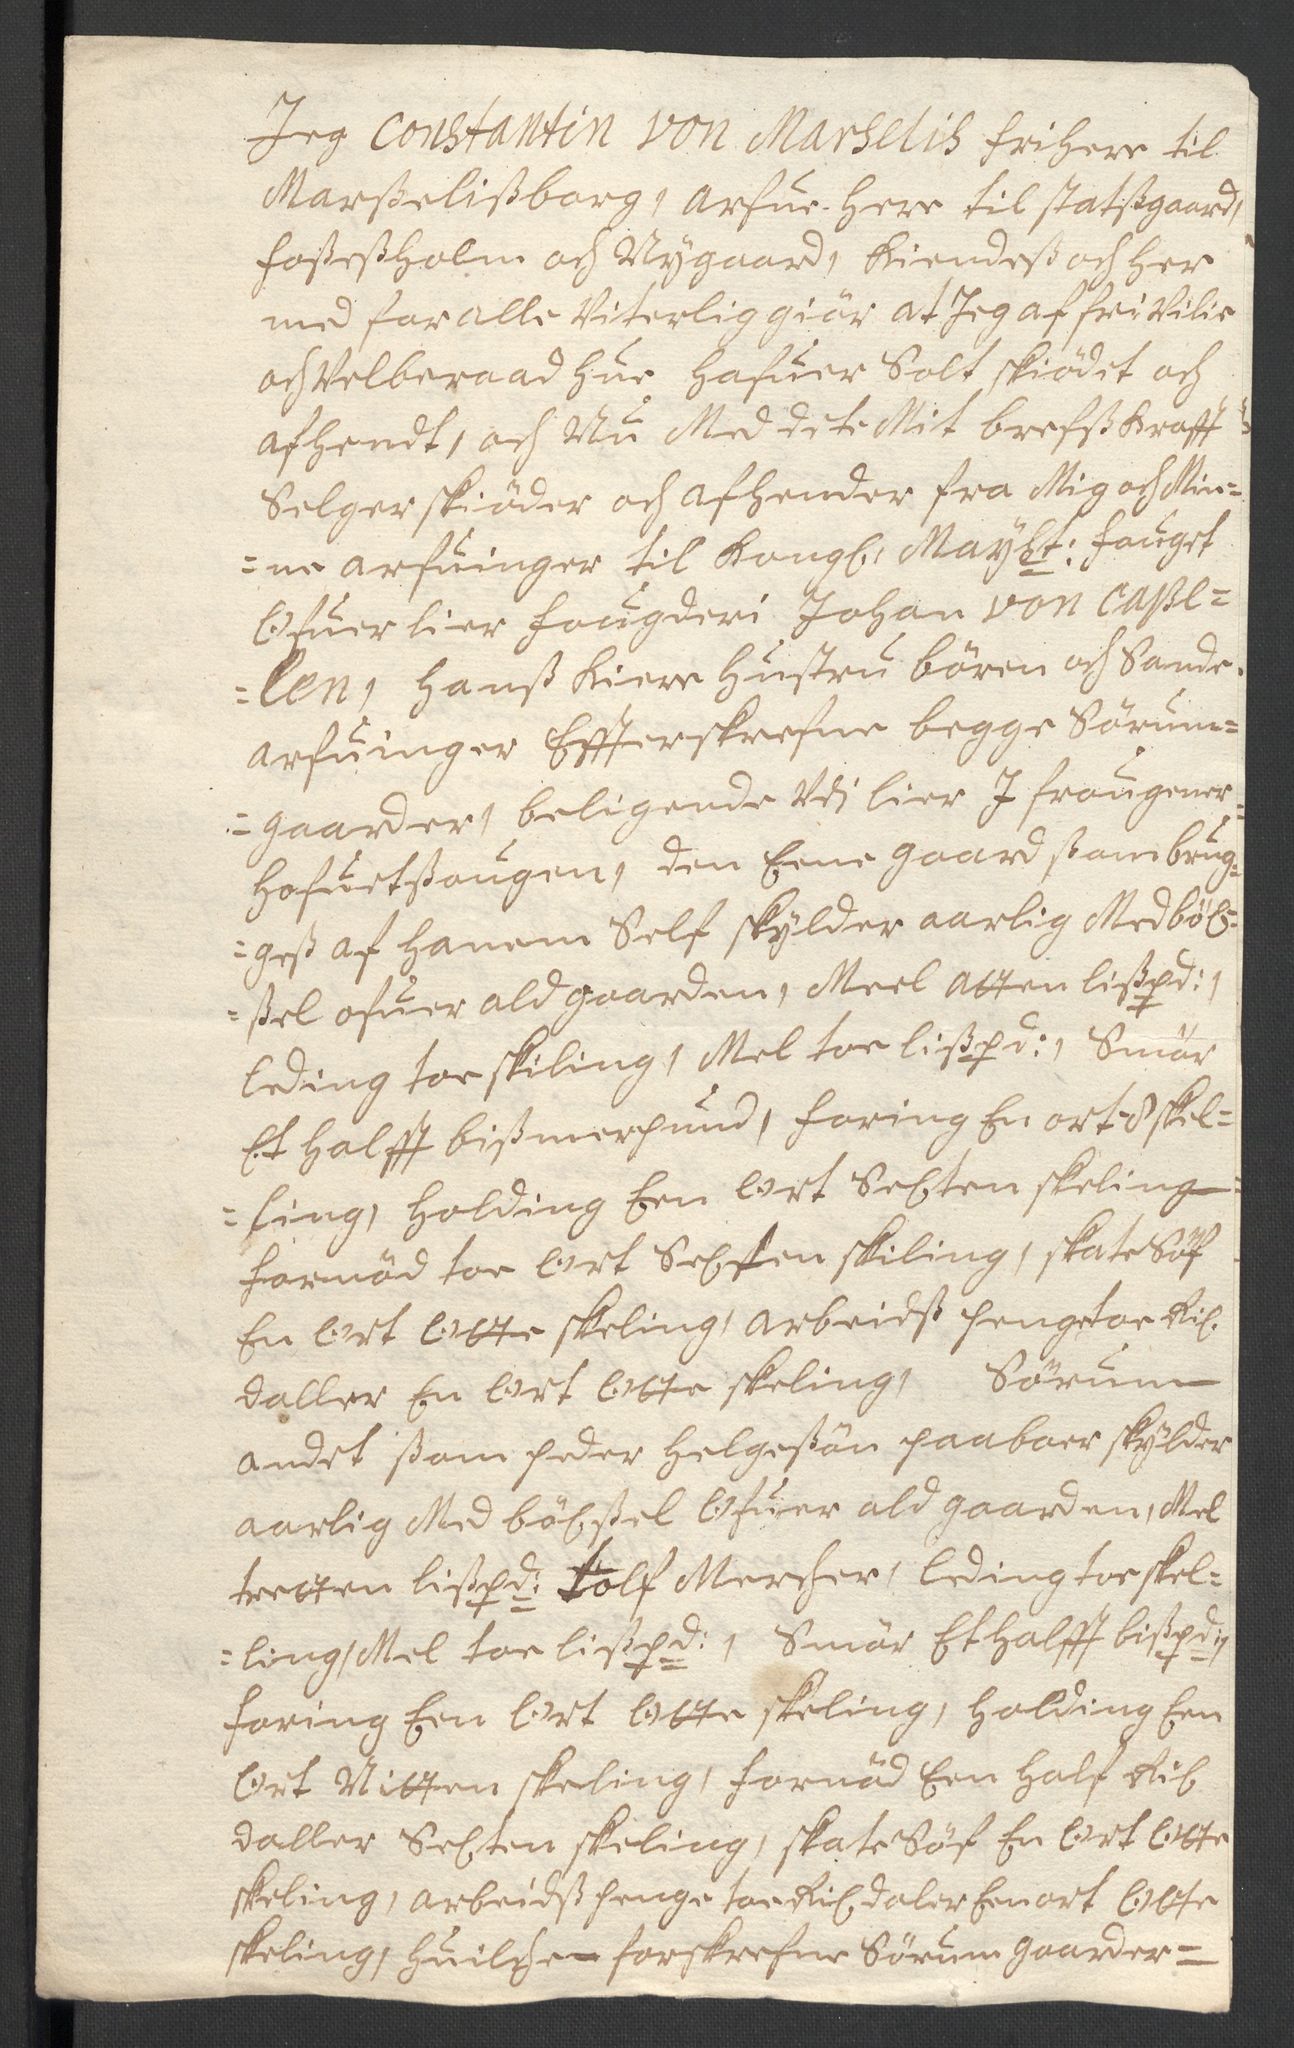 Jeg Constantin von Marselis friherr til
Marßelißborg, Arfue herr til statßgaard,
foßeßholm och Nygaard, kiendeß och her
med for alle Viterlig giör at Jeg af fri Vilie
och Velberaad hue hafuer Solt skiödet och
afhendt, och Nu Med dete Mit brefß krafft
Selger skiöder och afhender fra Mig och Min=
=ne arfuinger til Kongl: Mayst: fouget
Ofuer lier fougderi Johan von Caßl=
=len, hanß kiere hustru bören och Sande
arfuinger Effterskrefne begge Sörum=
=gaarder, beligende Vdi lier J frougener
hofuetßougen, den Eene gaard ßom brug=
=geß af hanem Self skylder aarlig Med böx=
=ßel ofuer ald gaarden, Meel atten lißpd:,
leding toe skiling, Mel toe lißpd:, Smör
Et halfft bißmerpund, foring En ort 8 skel=
=ling, holding Een Ort Sexten skeling
fornöd toe Ort Sexten skiling, skatesöf
En Ort Otte skeling, arbeidß penge toe Rix
daller En Ort Otte skeling, Sörum
andet ßom peder helgeßön paaboer skylder
aarlig Med böxßel Ofuer ald gaarden, Mel
tretten lißpd: tolf Mercher, leding toe skel=
=ling, Mel toe lißpd:, Smör Et halfft bißpd:,
foring Een Ort Otte skeling, holding Een
Ort Nitten skeling, fornöd Een half Rix
daller Sexten skeling, skatesöf En Ort Otte
skeling, arbeidß penge toe Rix daler Een ort Otte
skeling, huilche forskrefne Sörum gaarder=